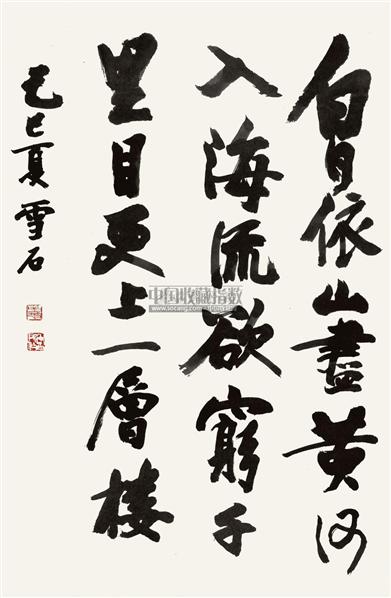 白日依山盡黄河
入海流欲窮千
里目更上一層樓
己巳夏雪石
中国收藏指数